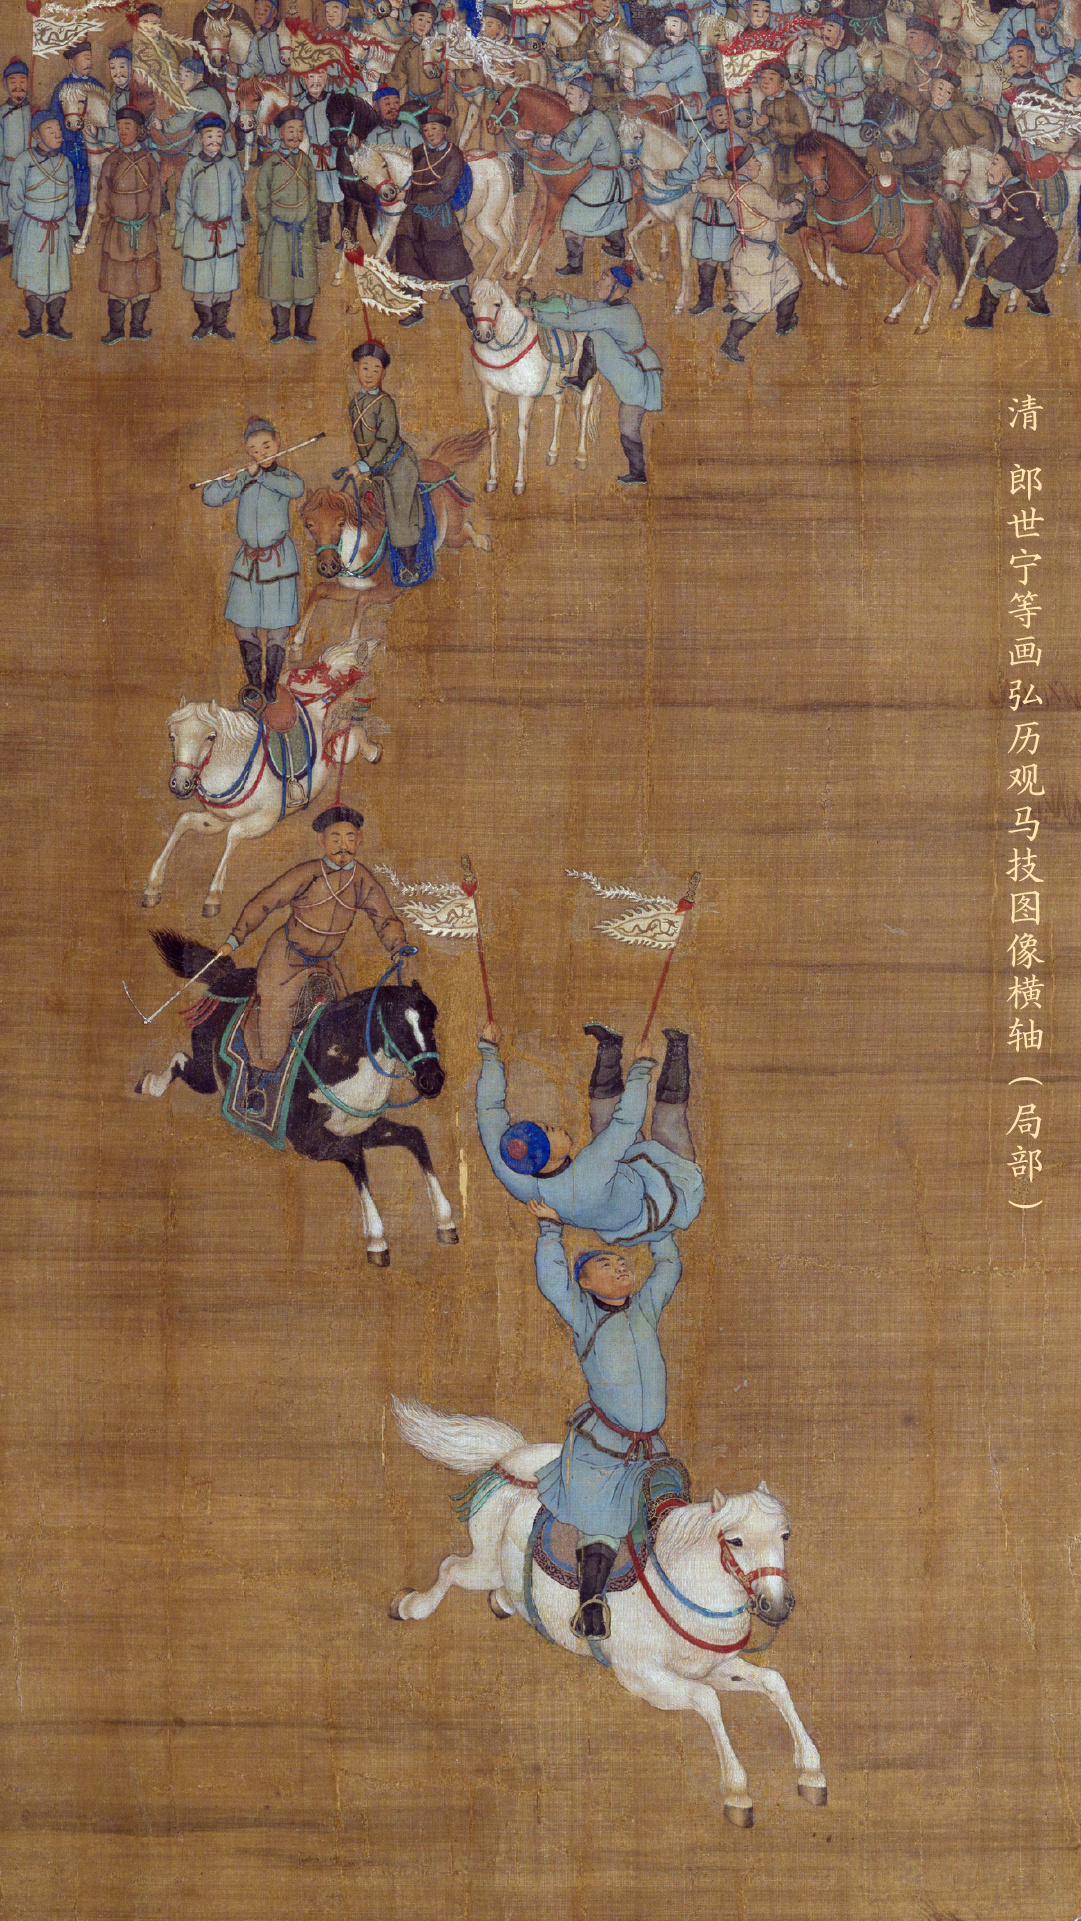 清 郎世宁等画弘历观马技图像横轴（局部）